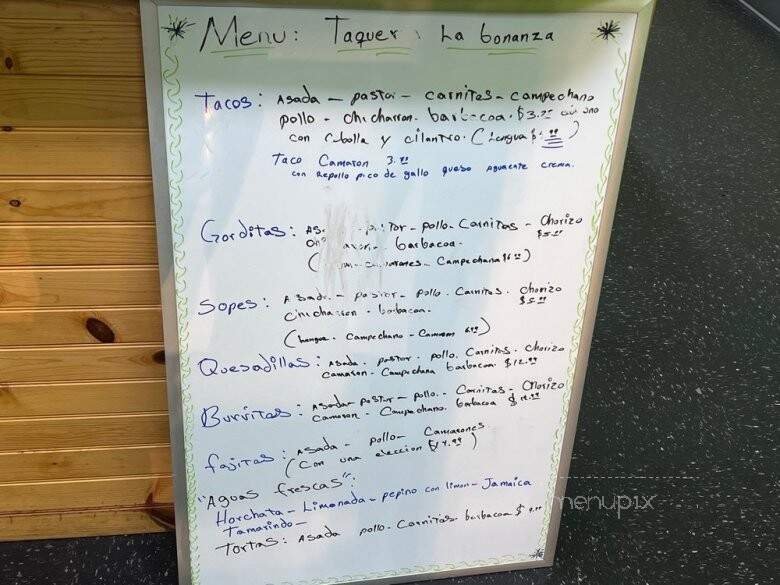 Menu: Taquer La bonanza
Tacos: Asada - pastor - carnitas - campechano
pollo - chicharron. barbacoa. $3. uno
con cebolla y cilantro. (Lengua $ )
Taco Camaron 3.
con Repollo pico de gallo queso aguacate crema.
Gorditas: As - pollo - Carnitas - Chorizo
$5.
barbacoa.
( Campechana $6. )
Sopes: Asada - pastor - pollo. Carnitas. chorizo
$5.
chicharron - barbacoa.
(Lengua - Campechano - )
Quesadillas: Asada - pastor. pollo. Carnitas. Chorizo
camaron - Campechana barbacoa $12.99
Burritas: Asada - Pastor - pollo. Carnitas - Chorizo
camaron - Campechano. barbacoa
fajitas: Asada - pollo - Camarones
(Con una eleccion )
"Aguas frescas":
Horchata - Limonada - pepino con limon - Jamaica
Tamarindo -
Tortas: Asada pollo. Carnitas - barbacoa $
menupix